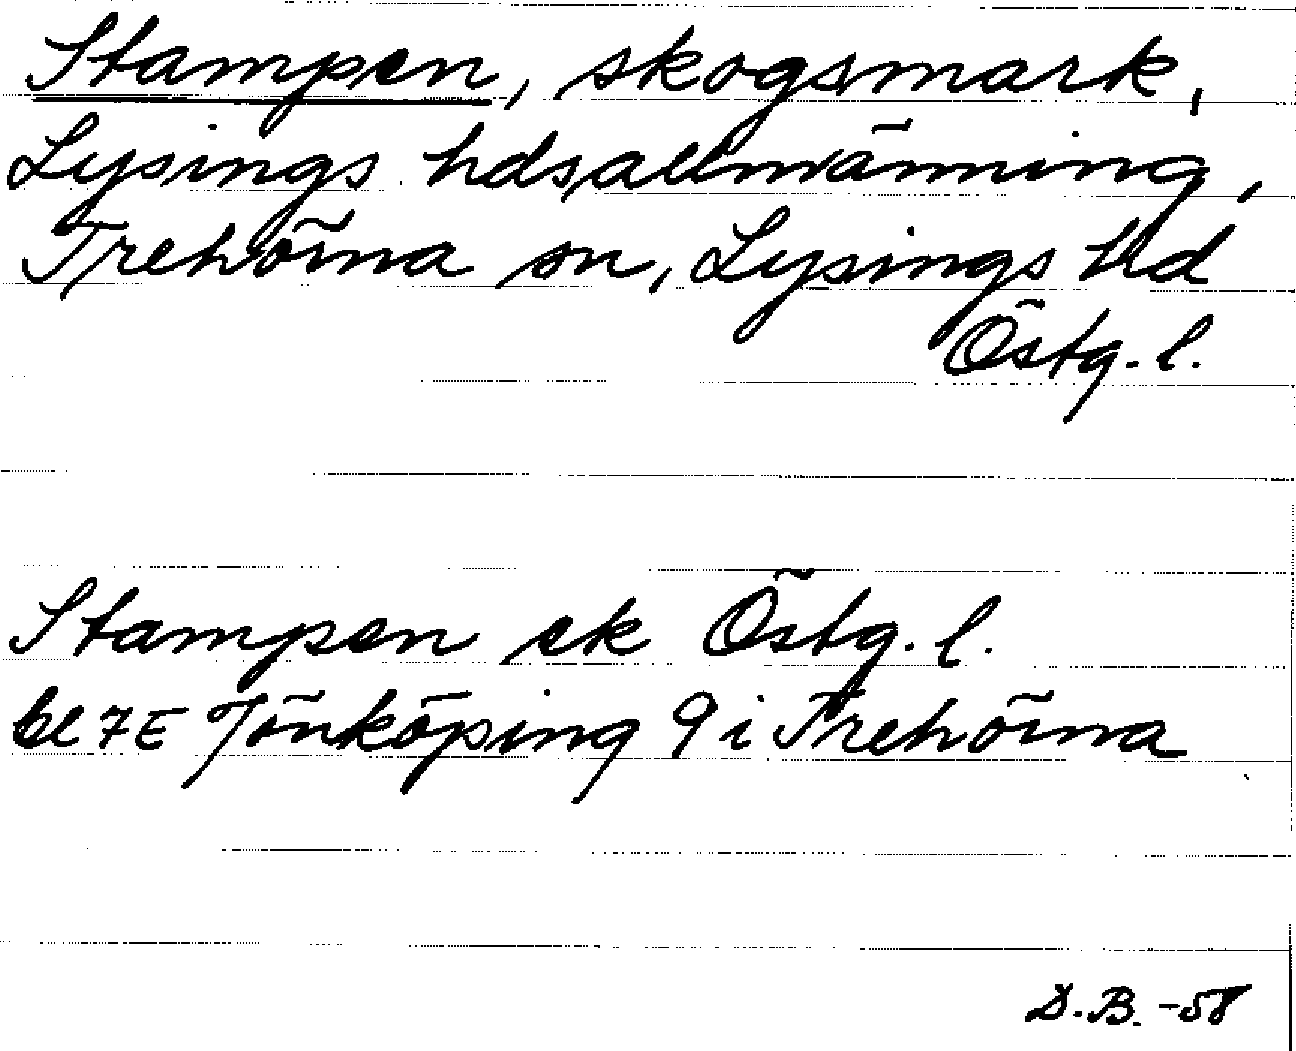 Stampen, skogsmark,
Lysings hdsallmänning,
Trehörna sn, Lysings hd
Östg. l.
Stampen ek Östg. l.
bl 7E Jönköping 9 i Trehörna
D.B. -58